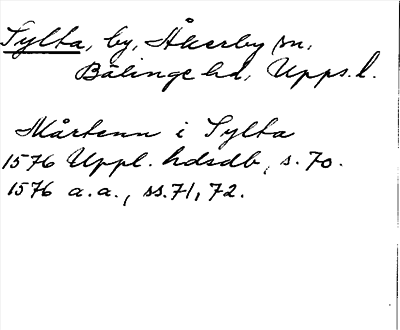 Sylta, by, Åkerby sn,
Bälinge hd, Upps. l.
Mårtenn i Sylta
1576 Uppl. hdsdb, s. 70.
1576 a.a., ss. 71, 72.